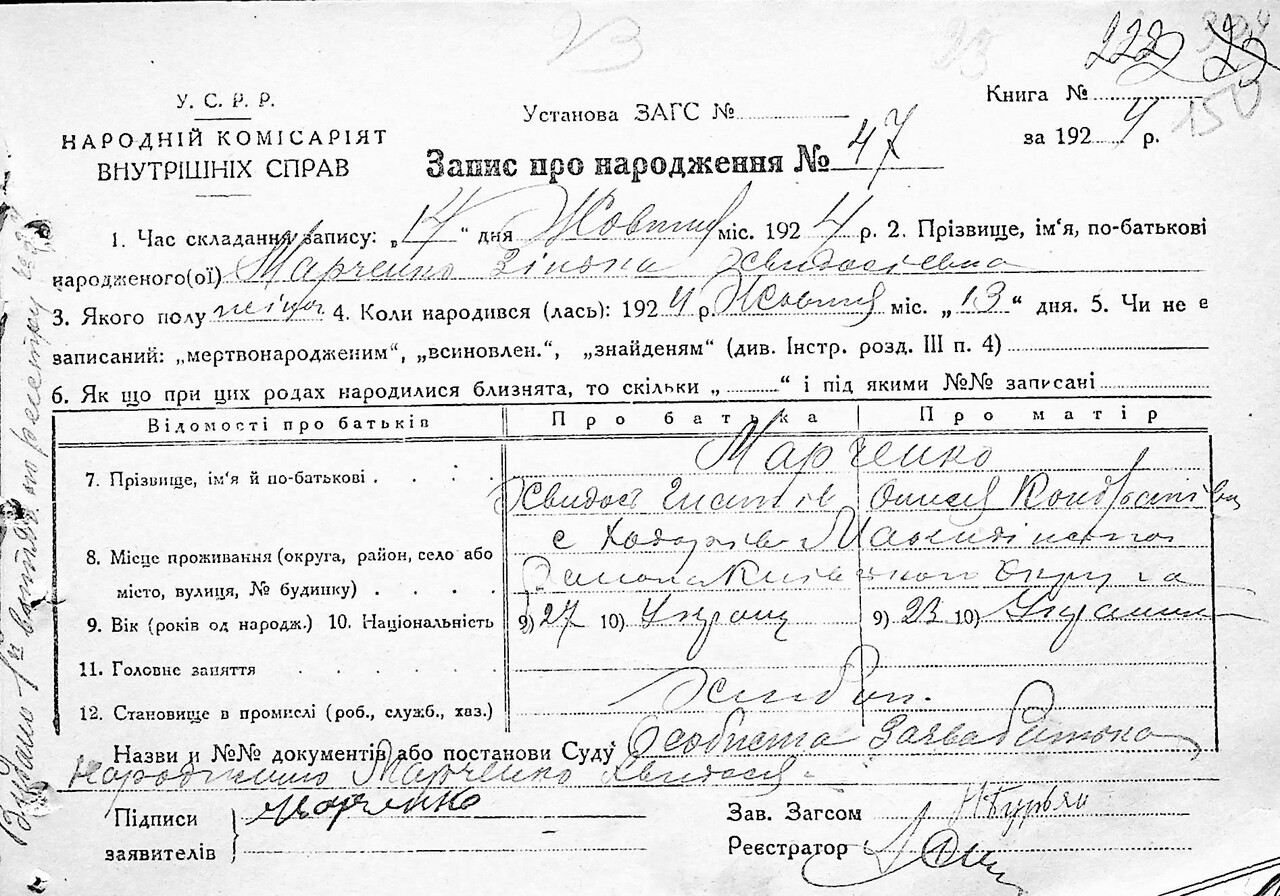 23
23
222 23
У. С. Р. Р.
НАРОДНІЙ КОМІСАРІЯТ
ВНУТРІШНІХ СПРАВ
Установа ЗАГС №
Книга № 150
за 1924 р.
Запис про народження № 47
1. Час складання запису: „14“ дня Жовтня міс. 1924 р. 2. Прізвище, ім'я, по-батькові
народженого(ої) Марченко Хвидосіевна
3. Якого полу жіноч 4. Коли народився (лась): 1924 р. Жовтня міс. „13“ дня. 5. Чи не є
записаний: „мертвонародженим“, „всиновлен.“, „знайденям“ (див. Інстр. розд. III п. 4)
6. Як що при цих родах народилися близнята, то скільки „ “ і під якими №№ записані
Відомості про батьків Про батька Про матір
7. Прізвище, ім'я й по-батькові . . . . Марченко
Хвидос Гнатов Кондратівн
8. Місце проживання (округа, район, село або
місто, вулиця, № будинку) . . . .
с Ходорків
Району Київського округа
9. Вік (років од народж.) 10. Національність 9) 27 10) Украінц 9) 23 10) Украинк
11. Головне заняття . . . . .
Хлібор.
12. Становище в промислі (роб., служб., хаз.)
Назви и №№ документів або постанови Суду Особиста Заява батька
народженого Марченко Хвидося
Підписи
заявителів
Марченко
Зав. Загсом
Реєстратор